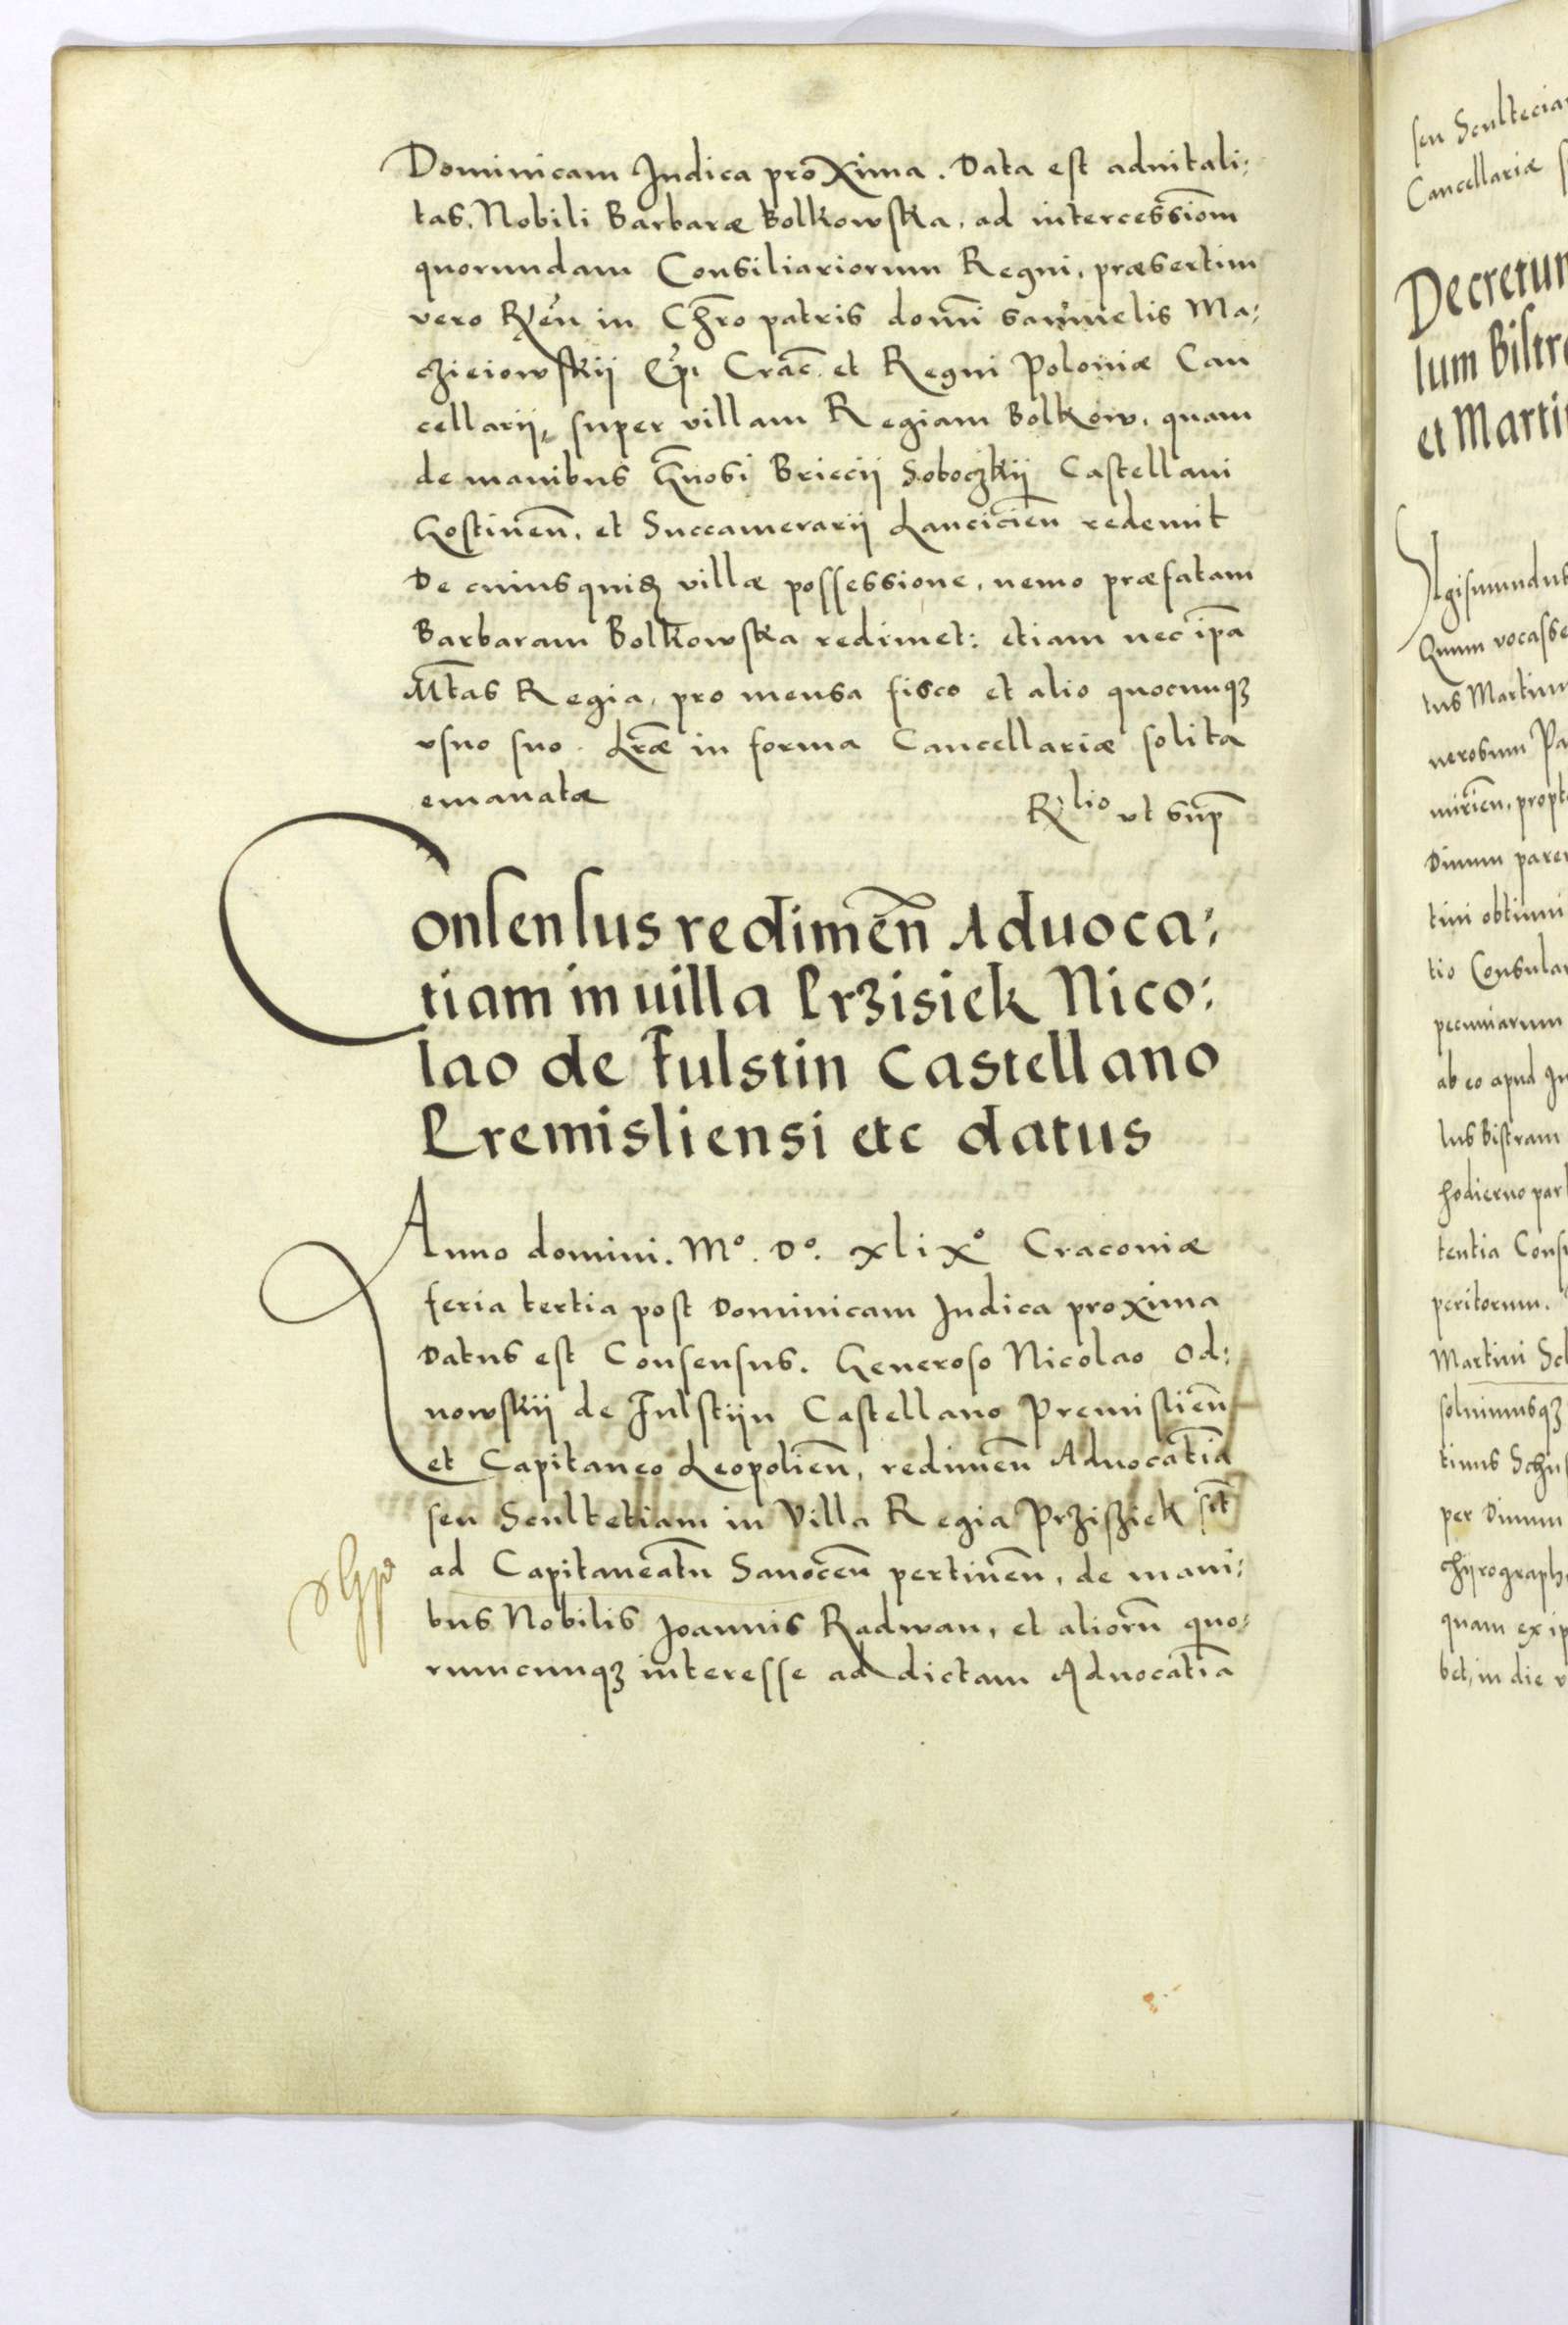 Dominicam Iudica proxima. Data est aduitali:
tas, Nobili Barbaræ Bolkowska, ad intercessiom̄
quorundam Consiliariorum Regni, præsertim
vero Rꝫẽn in Chr̃o patris domĩ Samuelis Ma:
cziеiowskii Ep̃i Crac̃. et Regni Poloniæ Can
cellarii, super villam Regiam Bolkow, quam
de manibus G̃nosi Briccii Soboczkii Castellani
Gostinen̄, et Succamerarii Lanciciеn̄ redemit
De cuiusquidꝫ villæ possessione, nemo præfatam
Barbaram Bolkowska redimet: etiam nec ip̃a
M̃tas Regia, pro mensa fisco et alio quocunqꝫ
vsuo suo. Lr̃æ in forma Cancellariæ solita
emanatæ
R̃lio vt sup̃
Consensus redimen̄ Aduoca:
tiam in uilla Przisiek Nico:
lao de Fulstin Castellano
Premisliensi etc datus
Anno domini. Mº. Dº. xlixº Cracouiæ
feria tertia post Dominicam Iudica proxima
Datus est Consensus. Generoso Nicolao Od:
nowskii de Fulstijn Castellano Premislien̄
et Capitaneo Leopolien̄, redimen̄ Aduocatiā
seu Scultetiam in Villa Regia Przisziek
ad Capitaneatū Sanocen̄ pertinen̄, de mani:
bus Nobilis Joannis Radwan, et aliorū quo:
rumcunqꝫ interesse ad dictam Aduocatiā
seu Scultecia
Cancellariæ
Decretum
lum Bistr
et Marti
Sigismundus
Quum vocasse
tus Martin
nerosum Pa
miriēn, propt
Diuum paren
tini obtinui
tio Consular
pecuniarum
ab eo apud In
lus Bistram
hodierno par
tentia Consu
peritorum.
Martini Sch
soluimusqꝫ
tinus Schu
per Diuum
chijrograph
quam ex ip
bet, in die v